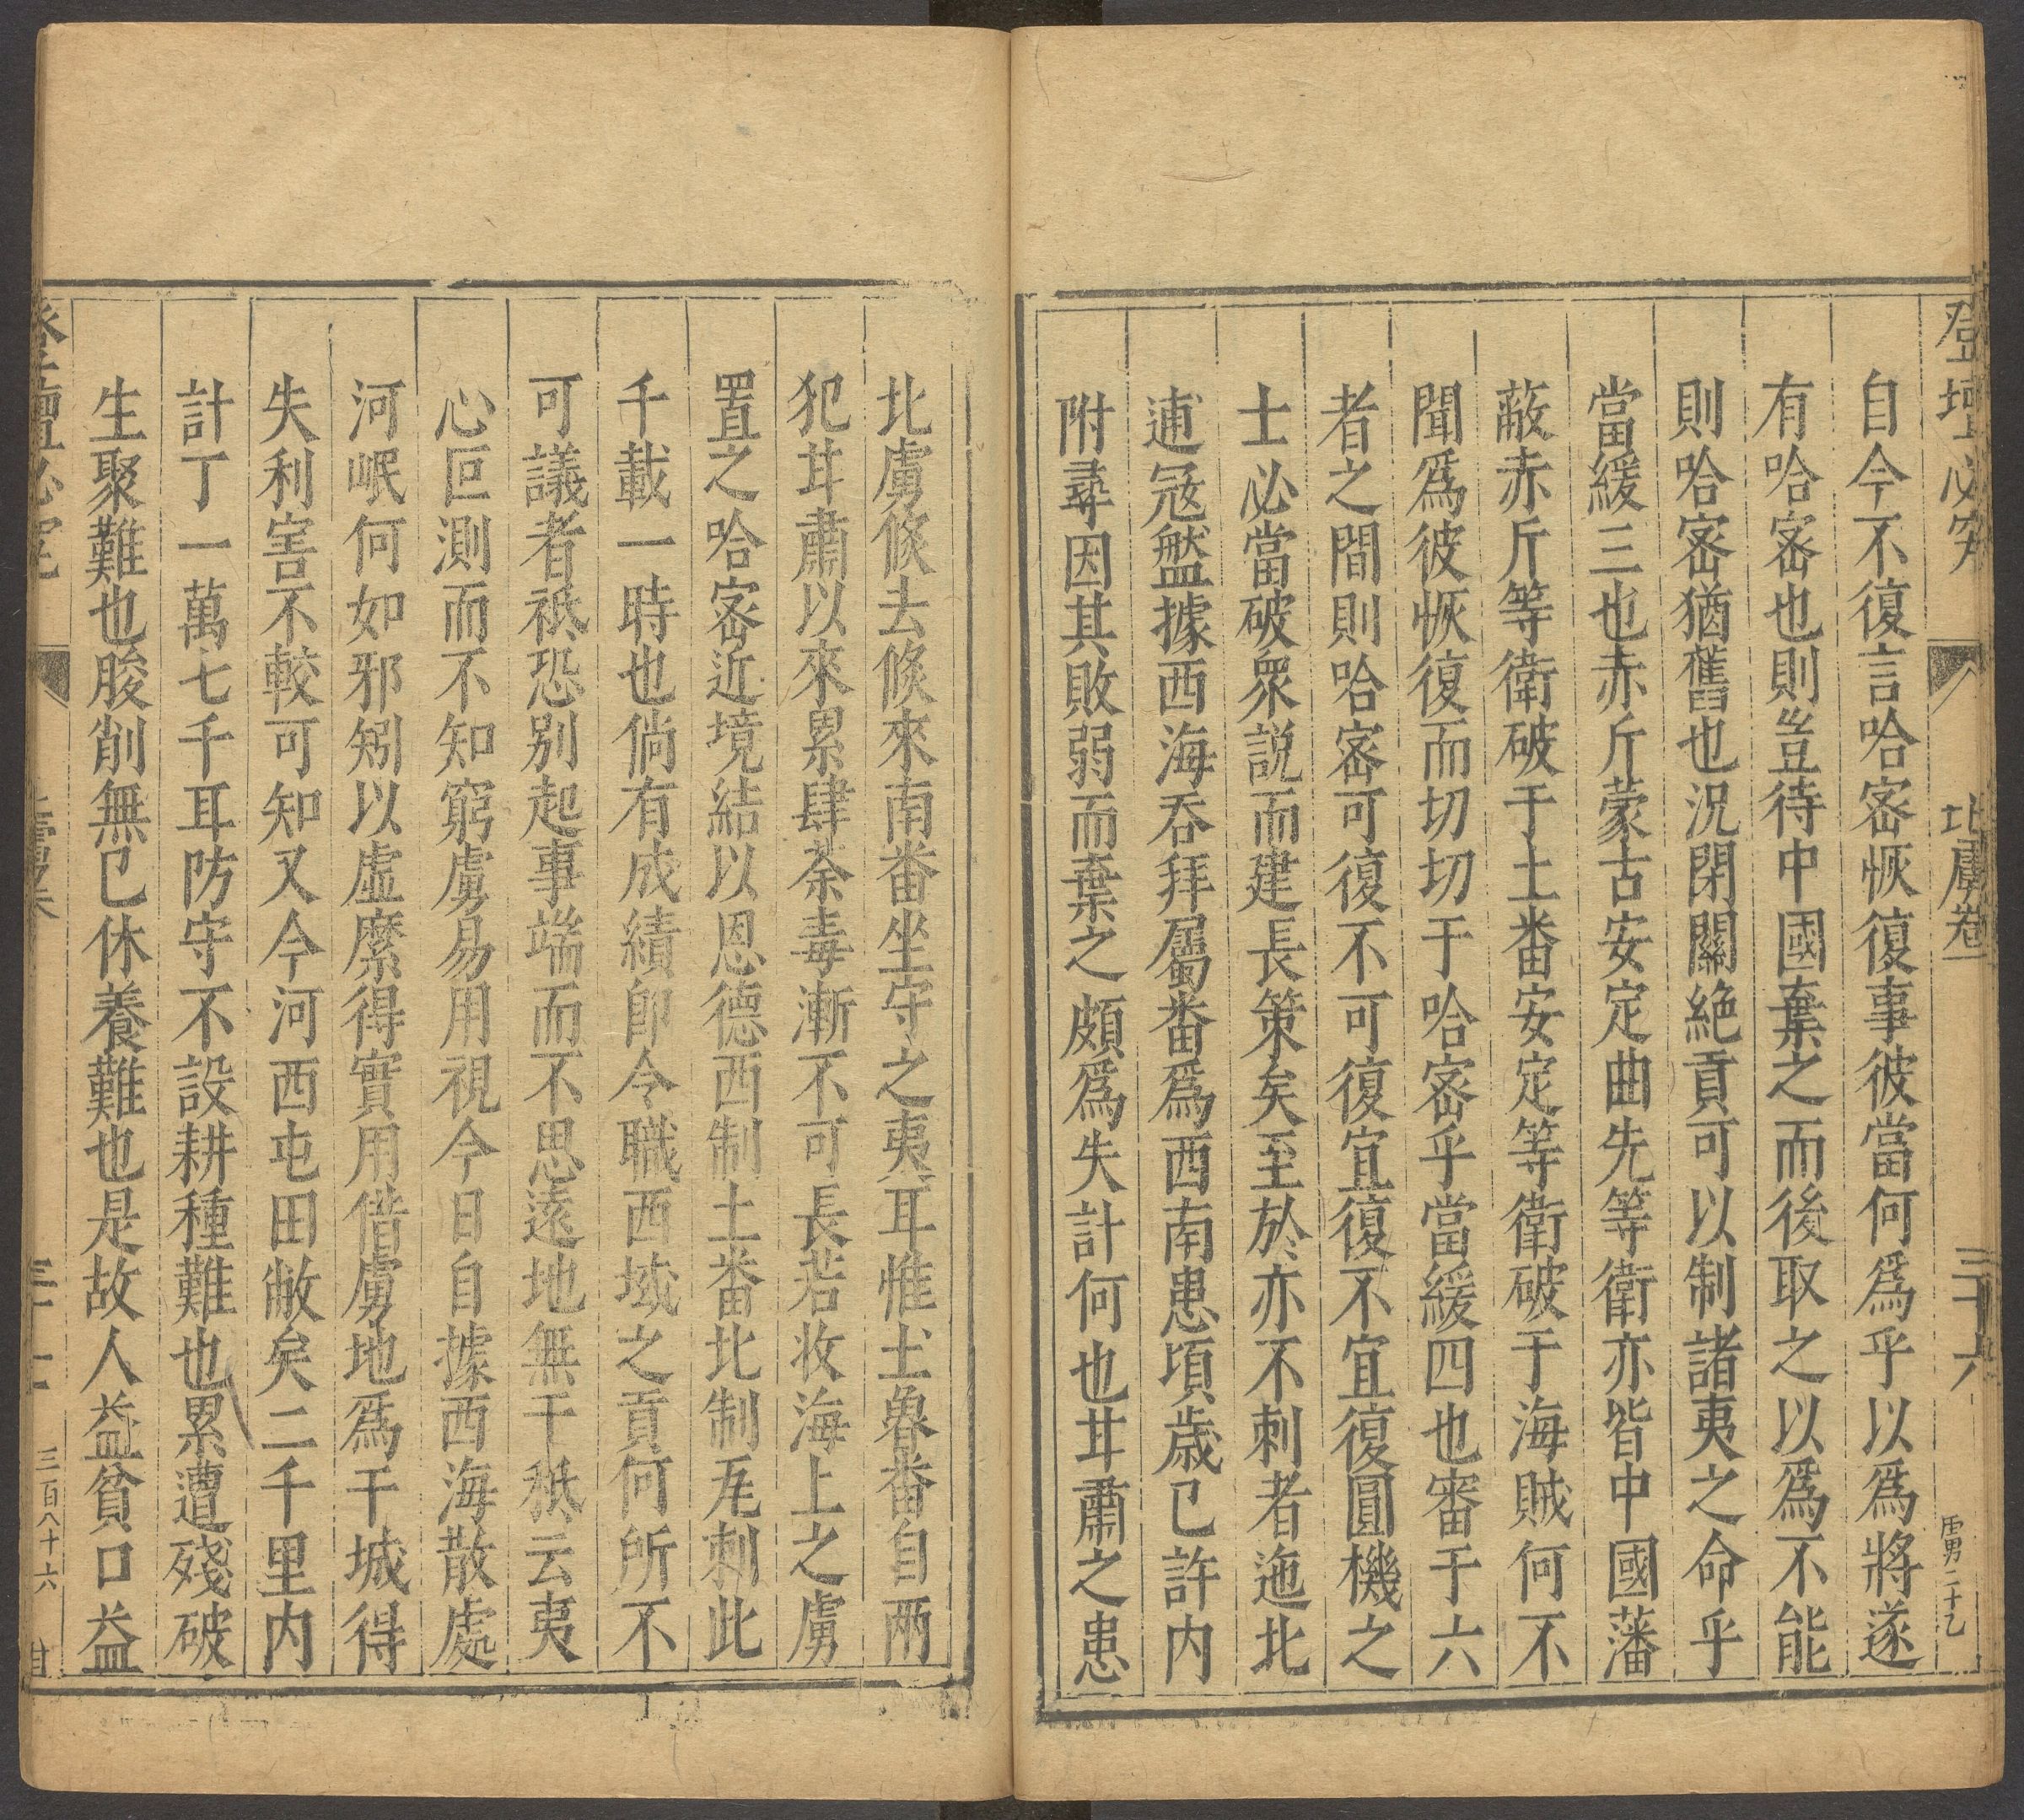 登壇必究 北虜卷一 三十六 二十乙
自今不復言哈宻恢復事彼當何爲乎以爲將遂
有哈宻也則豈待中國棄之而後取之以爲不能
則哈宻猶舊也況閉關絶貢可以制諸夷之命乎
當緩三也赤斤蒙古安定曲先等衛亦皆中國藩
蔽赤斤等衛破于土畨安定等衛破于海賊何不
聞爲彼恢復而切切于哈宻乎當緩四也審于六
者之間則哈宻可復不可復宜復不宜復圓機之
士必當破衆説而建長策矣至於亦不刺者迤北
逋冦盤據西海吞拜屬畨爲西南患頃歳已許内
附尋因其敗弱而棄之頗爲失計何也甘肅之患
北虜倐去倐來南畨坐守之夷耳惟土魯畨自兩
犯甘肅以來累肆荼毒漸不可長若收海上之虜
置之哈宻近境結以恩德西制土畨北制瓦刺此
千載一時也倘有成績卽令職西域之貢何所不
可議者祗恐别起事端而不思遠地無干秪云夷
心叵測而不知窮虜易用視今日自據西海散處
河岷何如邪矧以虛縻得實用借虜地爲干城得
失利害不較可知又今河西屯田敝矣二千里内
計丁一萬七千耳防守不設耕種難也累遭殘破
生聚難也朘削無已休養難也是故人益貧口益
登壇必究 三百八十六 甘